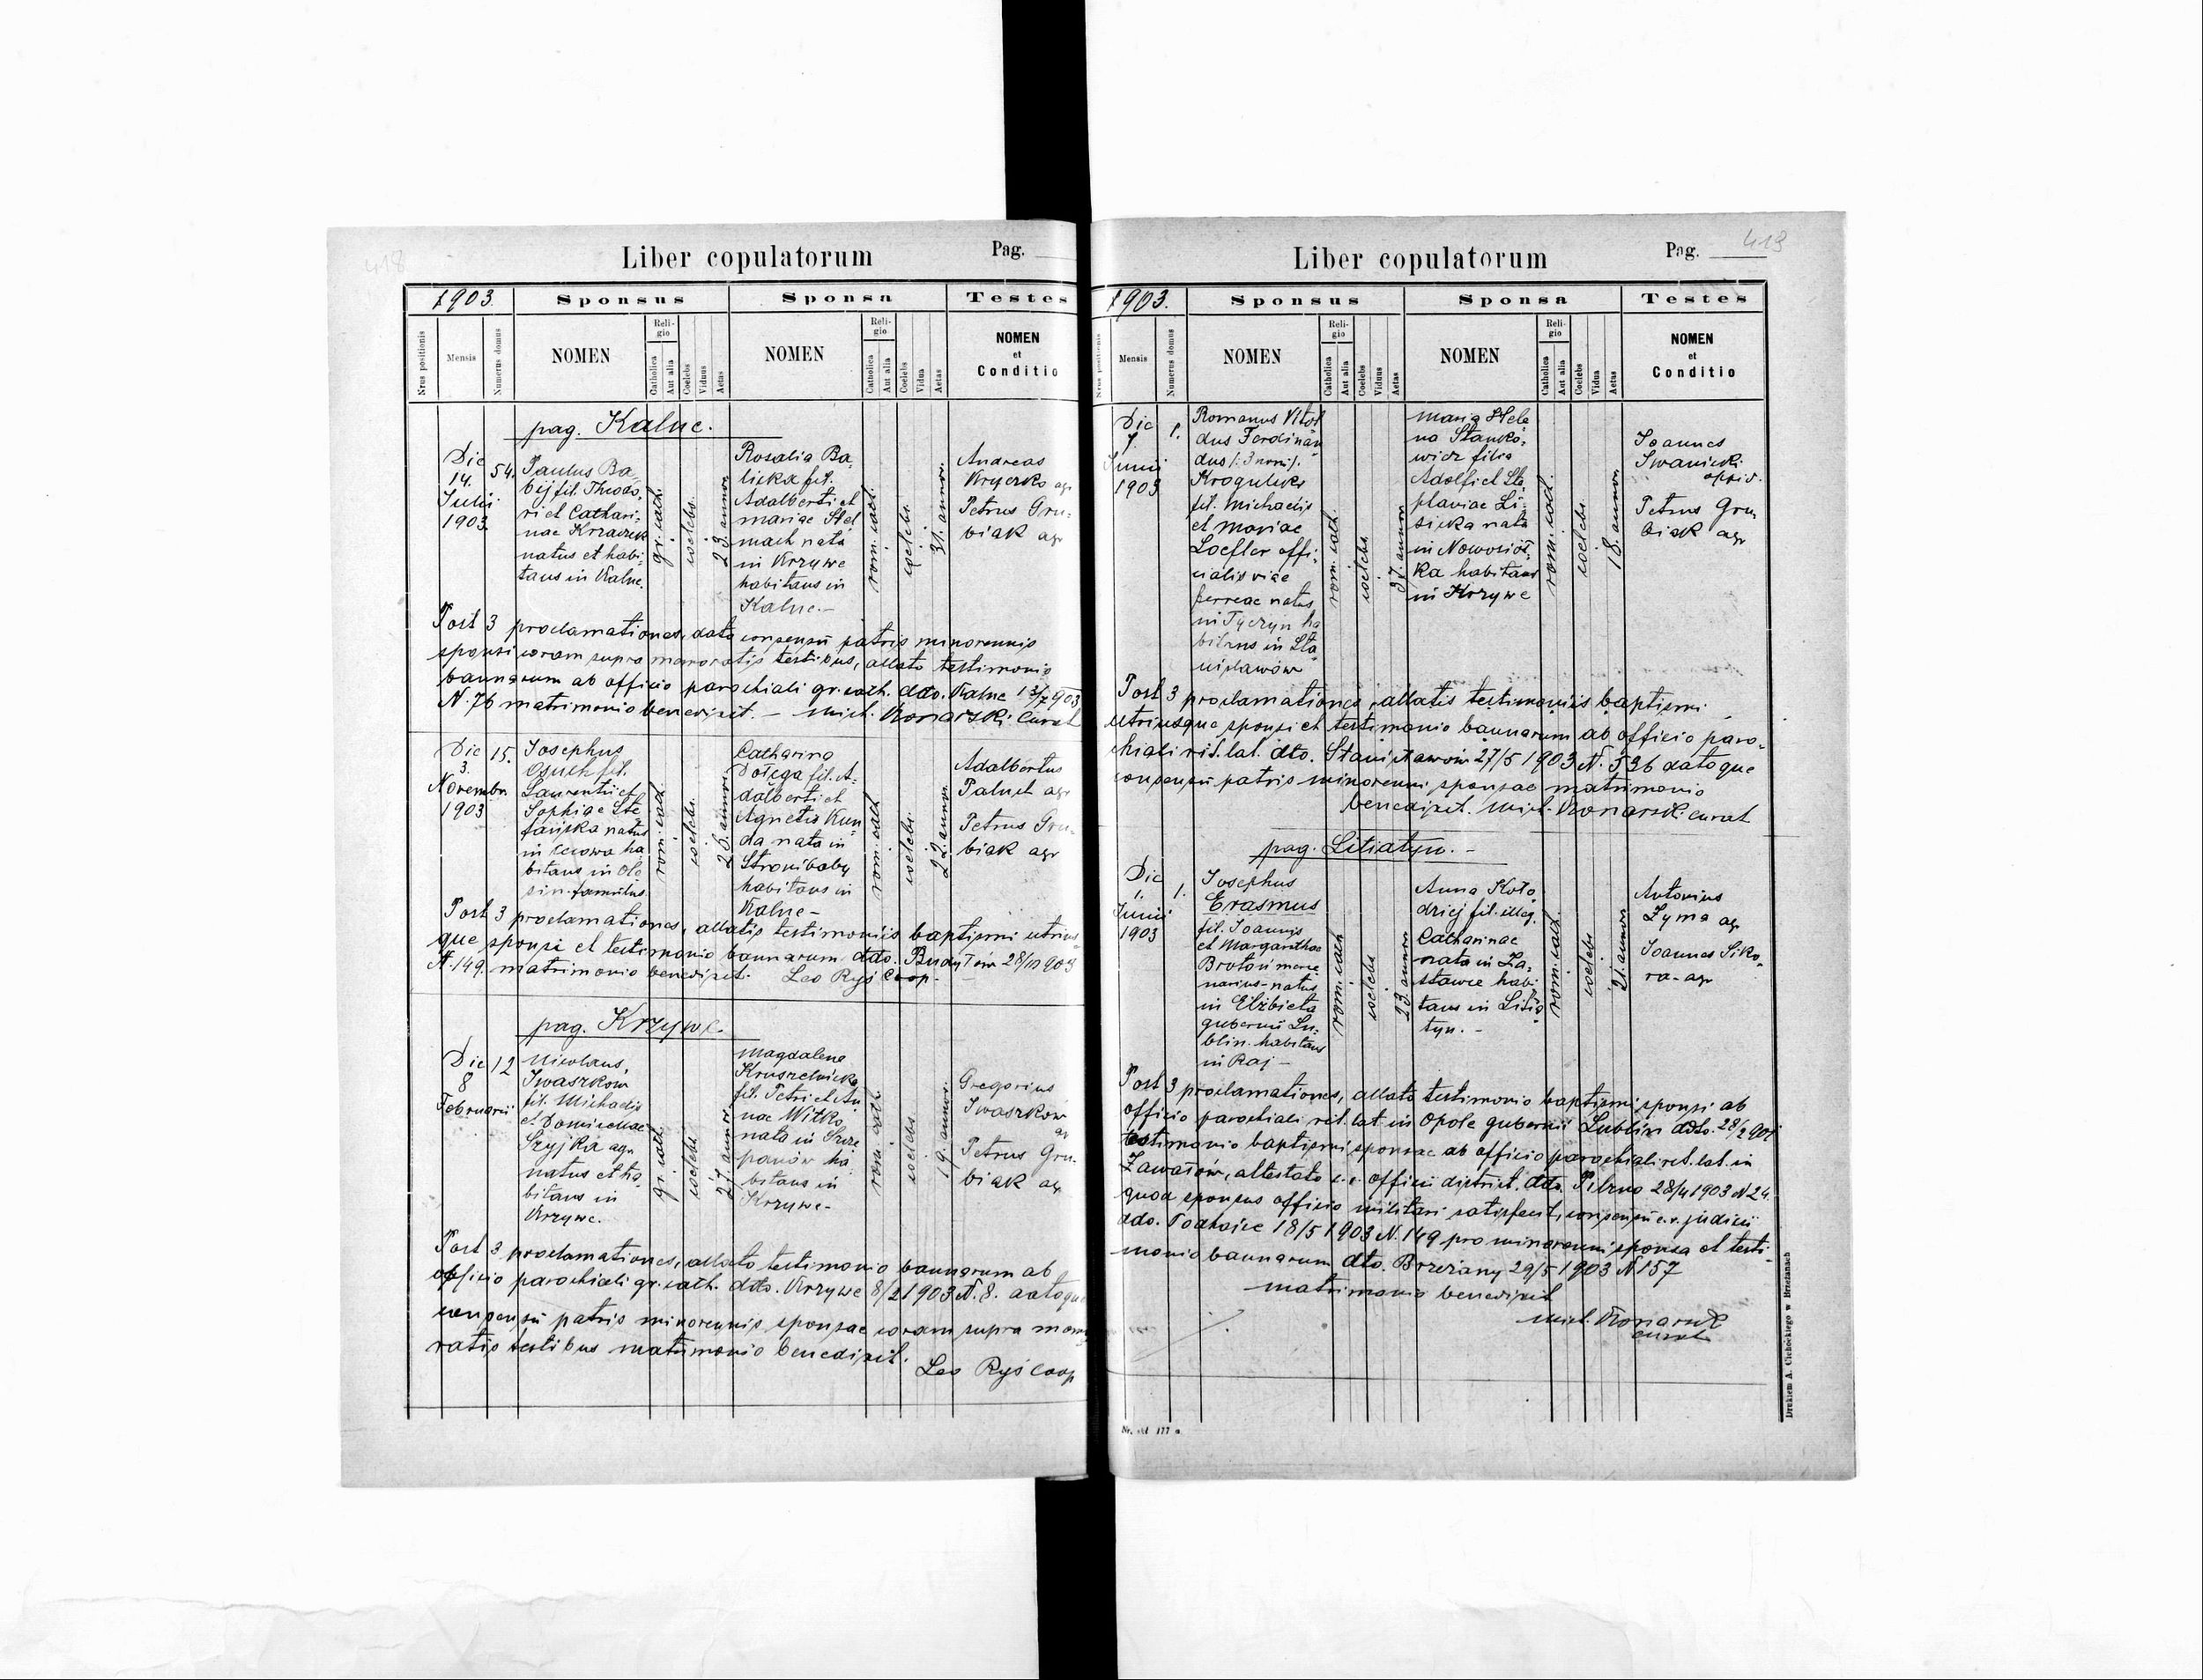 418
Liber copulatorum
Pag.
1903.
Sponsus
Sponsa
Testes
Nrus positionis
Mensis
Numerus domus
NOMEN
Religio
Catholica
Aut alia
Coelebs
Viduus
Aetas
NOMEN
Religio
Catholica
Aut alia
Coelebs
Vidua
Aetas
NOMEN
et
Conditio
pag. Kalne.
Die
14.
Julii
1903.
54.
Paulus Ba-
bij fil. Theodo-
ri et Cathari-
nae Krzaczek
natus et habi-
tans in Kalne.
gr. cath.
coelebs.
23. annor.
Rosalia Ba-
licka fil.
Adalberti et
Mariae Stel
mach nata
in Krzywe
habitans in
Kalne.-
rom. cath.
coelebs.
31. annor.
Andreas
Kryczko agr
Petrus Gru-
biak agr
Post 3 proclamationes, dato consensu patris minorennis
sponsi coram supra memoratis testibus, allato testimonio
bannorum ab officio parochiali gr. cath. ddo. Kalne 13/7 903
N. 76 matrimonio benedixit. - Mich. Konarski Curat
Die
3.
Novembr.
1903
15.
Josephus
Osuch fil.
Laurentii et
Sophiae Ste
fańska natus
in ha
bitans in Ole
sin famulus.
rom. cath.
coelebs.
26. annor.
Catharina
Dołęga fil. A-
dalberti et
Agnetis Kun
da nata in
Stronibaby
habitans in
Kalne-
rom. cath
coelebs.
22. annor.
Adalbertus
Paluch agr
Petrus Gru-
biak agr
Post 3 proclamationes, allatis testimoniis baptismi utrius-
que sponsi et testimonio bannorum ddo. Budyłów 28/10 903
N. 149. matrimonio benedixit. Leo Ryś Coop.
pag. Krzywe.
Die
8
Februarii
12
Nicolaus
Iwaszkow
fil. Michaelis
et Domicellae
Szyjka agr.
natus et ha-
bitans in
Krzywe.
gr. cath.
coelebs.
27 annor.
Magdalena
Kruszelnicka
fil. Petri et An
nae Witko
nata in Szcze
panów ha-
bitans in
Krzywe-
rom. cath
coelebs.
19. annor.
Gregorius
Iwaszkow
agr
Petrus Gru-
biak agr
Post 3 proclamationes, allato testimonio bannorum ab
officio parochiali gr. cath. ddo. Krzywe 8/2 1903 N. 8. datoque
consensu patris minorennis sponsae coram supra memo
ratis testibus matrimonio benedixit.
Leo Ryś Coop
Liber copulatorum
Pag. 419
1903.
Sponsus
Sponsa
Testes
Nrus positionis
Mensis
Numerus domus
NOMEN
Religio
Catholica
Aut alia
Coelebs
Viduus
Aetas
NOMEN
Religio
Catholica
Aut alia
Coelebs
Vidua
Aetas
NOMEN
et
Conditio
Die
7.
Junii
1903
1.
Romanus Vitol
dus Ferdinan
dus /: 3 nom:/.
Kogulski
fil. Michaelis
et Mariae
Loefler offi-
cialis viae
ferreae natus
in Tyczyn ha
bitans in Sta
nisławów
rom. cath.
coelebs.
37. annor
Maria Hele
na Stanko-
wicz filia
Adolfi et Sta
nislaviae Li-
sicka nata
in Nowosiół-
ka habitans
in Krzywe
rom. cath.
coelebs.
18. annor.
Joannes
Iwanicki
oppid.
Petrus Gru
biak agr
Post 3 proclamationes, allatis testimoniis baptismi
utriusque sponsi et testimonio bannorum ab officio paro-
chiali rit. lat. dto. Stanisławów 27/5 1903 N. 536 datoque
consensu patris minorenni sponsae matrimonio
benedixit. Mich. Konarski curat
pag. Litiatyn. -
Die
1.
Junii
1903
1.
Josephus
Erasmus
fil. Joannis
et Margarethae
Brotoń merce
narius-natus
in Elżbieta
gubernii Lu-
blin. habitans
in Raj-
rom. cath
coelebs
23. annor
Anna Koło
dziej fil. illeg.
Catharinae
nata in Za-
stawce habi-
tans in Litia
tyn. -
rom. cath.
coelebs
21. annor
Antonius
Zyma agr
Joannes Siko-
ra-agr
Post 3 proclamationes, allato testimonio baptismi sponsi ab
officio parochiali rit. lat. in Opole gubernii Lublin ddto. 28/2 901
testimonio baptismi sponsae ab officio parochiali rit. lat. in
Zawałów, attestato c. r. officii district. ddto. Pilzno 28/4 1903 N 24.
quod sponsus officio militari satisfecit, consensu c. r. judicii
ddo. Podhajce 18/5 1903 N. 149 pro minorenni sponsa et testi-
monio bannorum dto. Brzeżany 29/5 1903 N 157
matrimonio benedixit
Mich. Konarski
curat
Drukiem A. Cichockiego w Brzeżanach